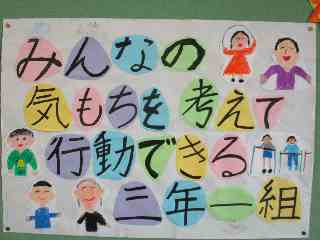 みんなの
気もちを考えて
行動できる
三年一組